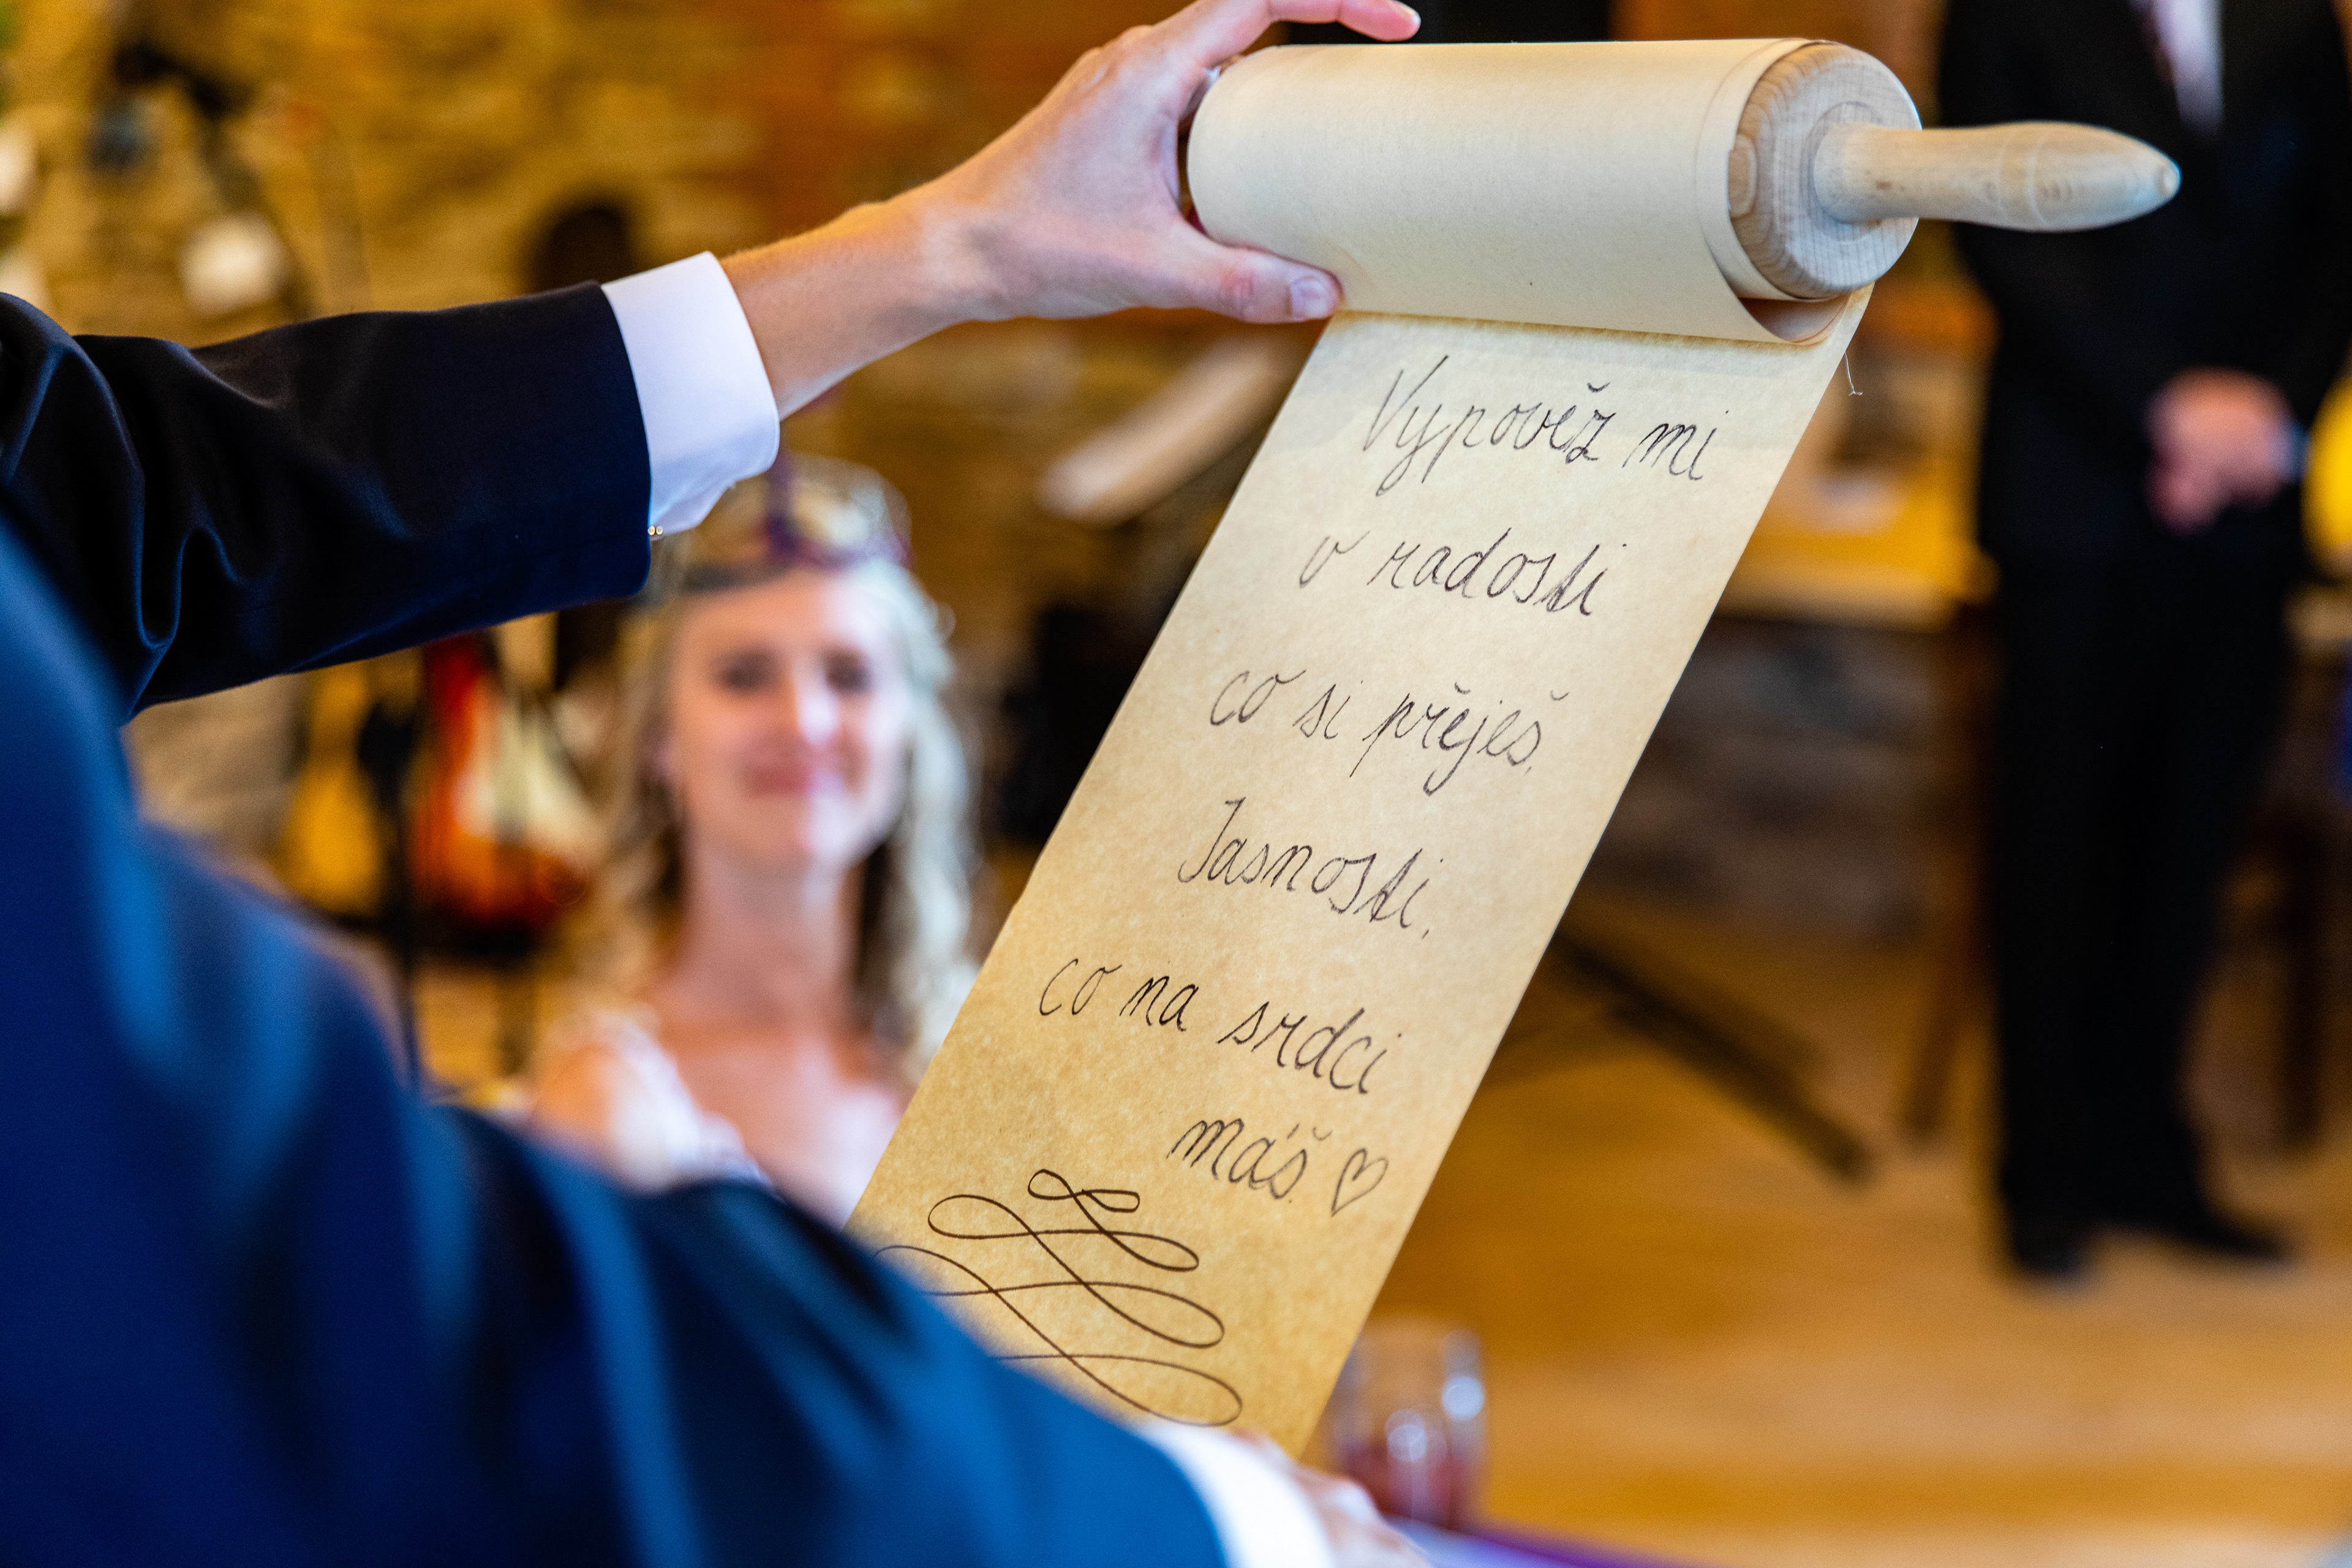 Vypověz mi
v radosti
co si přeješ.
Jasnosti,
co na srdci
máš. ♡